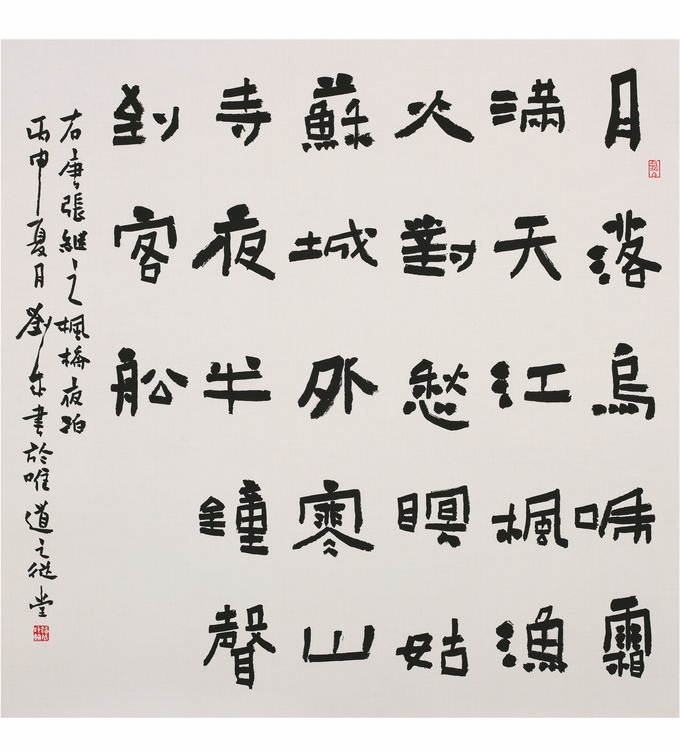 月落烏啼霜
滿天江楓漁
火對愁瞑姑
蘇城外寒山
寺夜半鐘聲
到客船
右唐張継之楓橋夜泊
丙申夏月劉書於唯道之從堂